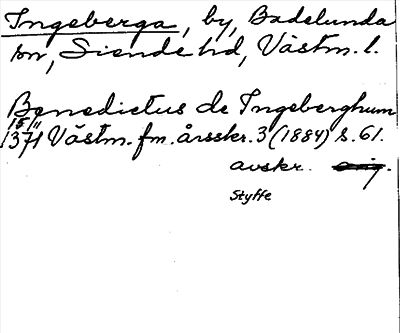 Ingeberga, by, Badelunda
sn, Siende hd, Västm. l.
Benedictus de Ingeberghum
15/11
1371 Västm. fm. årsskr. 3 (1884) s. 61.
avskr. orig.
Styffe